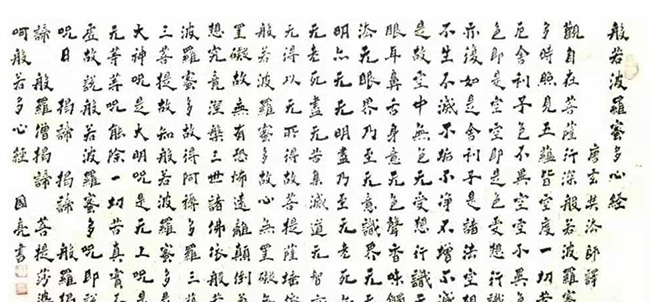 般若波羅蜜多心經
唐玄奘法師譯
觀自在菩薩行深般若波羅蜜
多時照見五蘊皆空度一切苦
厄舍利子色不異空空不異
色即是空空即是色受想行
亦復如是舍利子是諸法空想
不生不滅不垢不淨不增不
是故空中無色无受想行識无
眼耳鼻舌身意无色聲香味觸
法无眼界乃至无意識界无
明亦无无明盡乃至无老死
无老死盡无苦集滅道无智亦
无得以无所得故菩提薩埵依
般若波羅蜜多故心無罣礙无
罣礙故無有恐怖遠離顛倒夢
想究竟涅槃三世諸佛依般若
波羅蜜多故得阿耨多羅三藐
三菩提故知般若波羅蜜多是
大神呪是大明呪是无上呪是
无等等呪能除一切苦真實不
虛故說般若波羅蜜多呪即說
呪曰 揭諦 揭諦 般羅揭
諦 般羅僧揭諦 菩提莎婆
呵般若多心經 国亮書